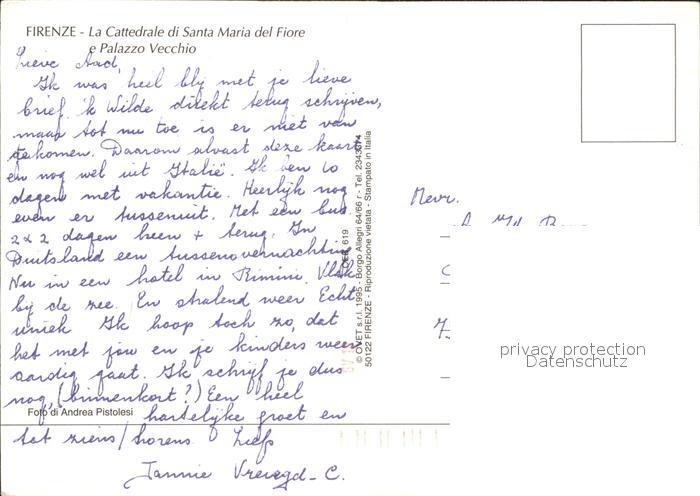 FIRENZE - La Cattedrale di Santa Maria del Fiore
e Palazzo Vecchio
Lieve Aad,
Ik was heel blij met je lieve
brief. 'k Wilde direkt terug schrijven,
maar tot nu toe is er niet van
gekomen. Daarom alvast deze kaart
en nog wel uit Italië. Ik ben 10
dagen met vakantie. Heerlijk nog
even er tussenuit. Met een bus.
2x2 dagen heen + terug. In
Duitsland een tussenovernachting
Nu in een hotel in Rimini. Vlak
bij de zee. En stralend weer Echt
uniek Ik hoop toch zo, dat
het met jou en je kinders weer
aardig gaat. Ik schrijf je dus
nog, (binnenkort?) Een heel
hartelijke groet en
tot ziens/horens. Liefs
Jannie
Foto di Andrea Pistolesi
© OVET s.r.l. 1995 - Borgo Allegri 64/66 r - Tel.
50122 FIRENZE - Riproduzione vietata - Stampato in Italia
619
Mevr.
privacy protection
Datenschutz